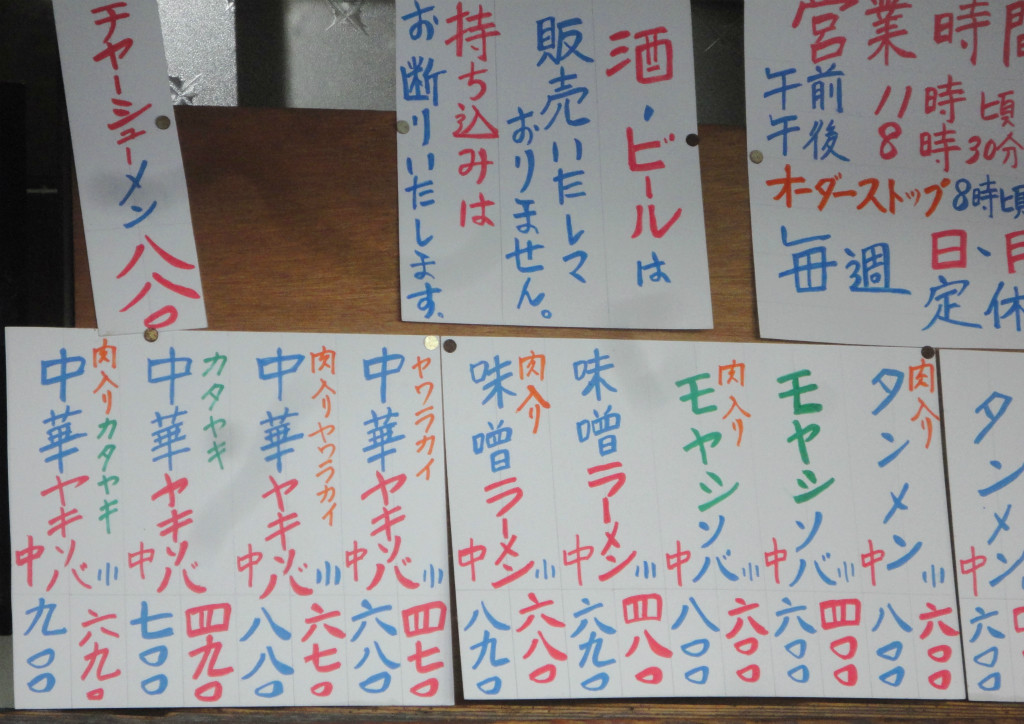 営業時間
午前 11時頃
午後 8時30分
オーダーストップ 8時頃
毎週 日、月
定休
酒・ビールは
販売いたしマ
おりません。
持ち込みは
お断りいたします。
チャーシューメン 八八〇
タンメン
中 六〇〇
肉入り
タンメン
小 六〇〇
中 八〇〇
モヤシソバ
小 四〇〇
中 六〇〇
肉入り
モヤシソバ
小 六〇〇
中 八〇〇
味噌ラーメン
小 四八〇
中 六九〇
肉入り
味噌ラーメン
小 六八〇
中 八九〇
ヤワラカイ
中華ヤキソバ
小 四七〇
中 六八〇
肉入りヤワラカイ
中華ヤキソバ
小 六七〇
中 八八〇
カタヤキ
中華ヤキソバ
四九〇
中 七〇〇
肉入りカタヤキ
中華ヤキソバ
小 六九〇
中 九〇〇